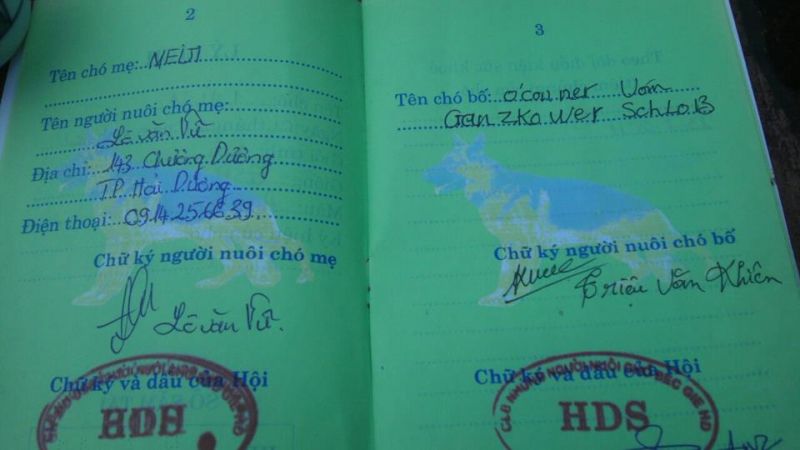 2
Tên chó mẹ: NEIM
Tên người nuôi chó mẹ:
Lê Văn Vữ
Địa chỉ: 143 Chương Dương
T.P Hải Dương
Điện thoại: 0914.25.66.39
Chữ ký người nuôi chó mẹ
Lê Văn Vữ.
Chữ ký và dấu của Hội
HDH
3
Tên chó bố: O'conner Vom
Ganzkower SchLoB
Chữ ký người nuôi chó bố
Triệu Văn Khiên
Chữ ký và dấu của Hội
CLB NHỮNG NGƯỜI NUÔI CHÓ BÉC GIE HD
HDS